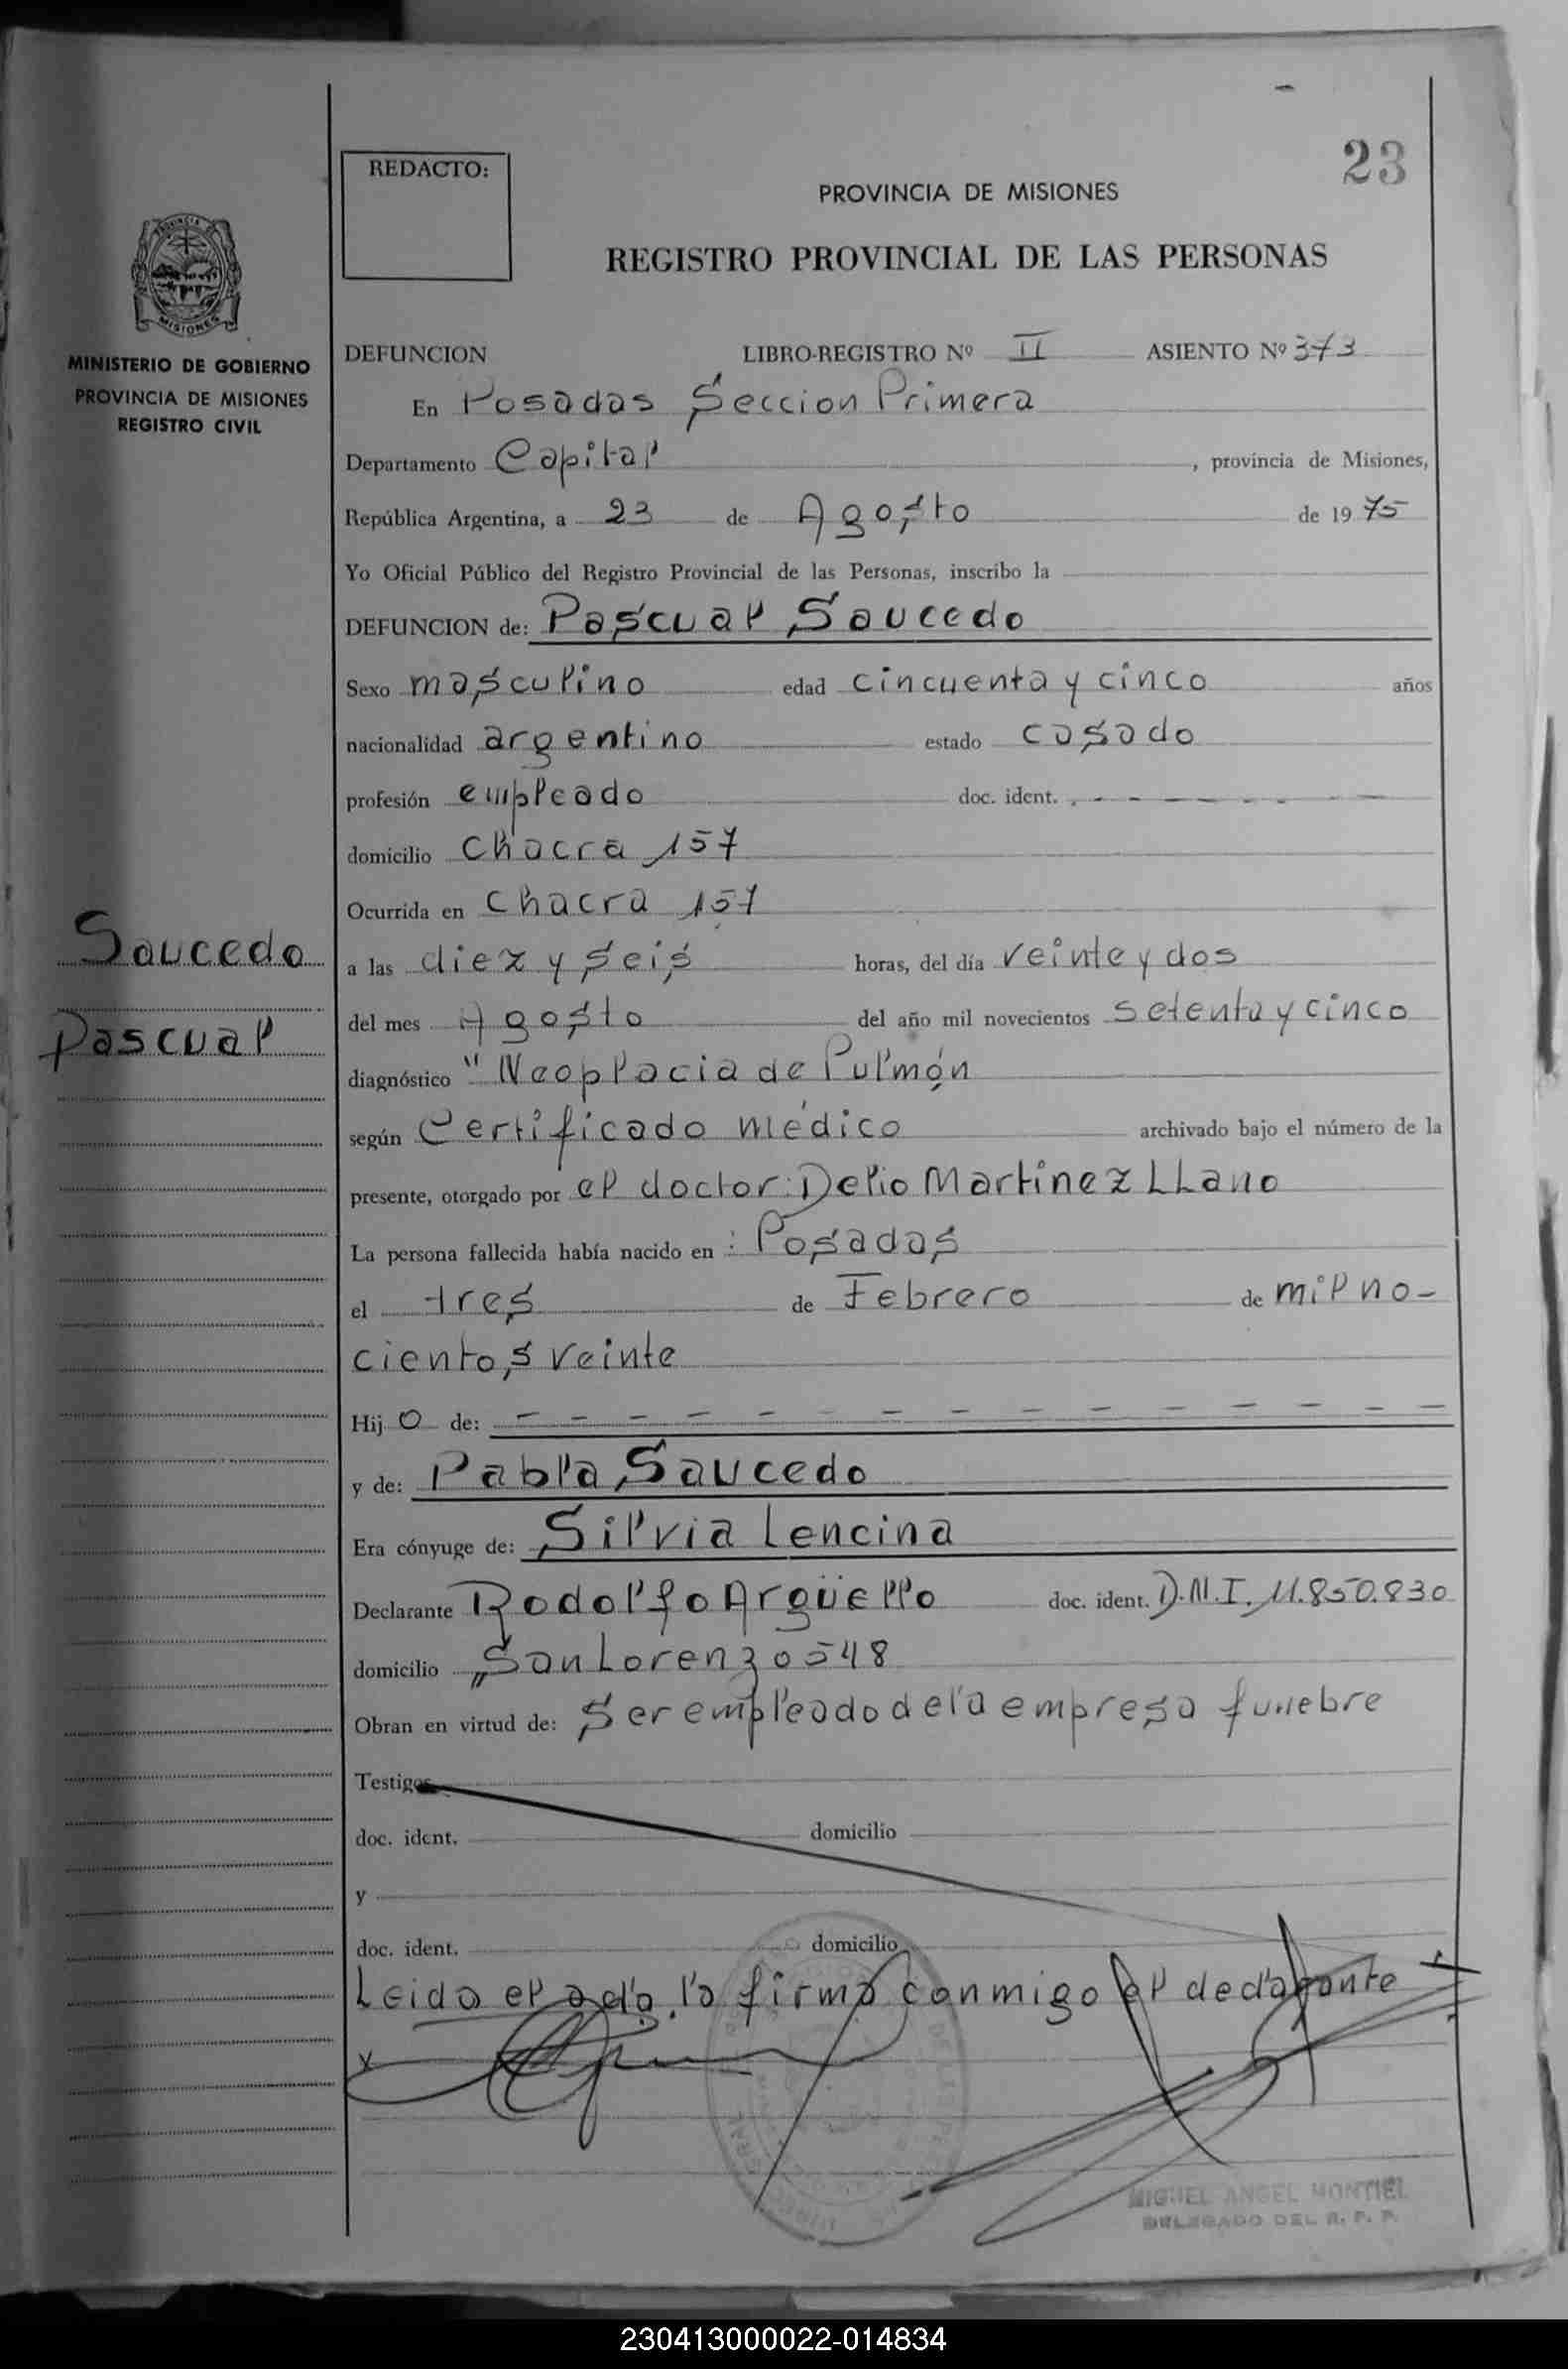 23
REDACTO:
PROVINCIA DE MISIONES
REGISTRO PROVINCIAL DE LAS PERSONAS
MISIONES
MINISTERIO DE GOBIERNO
PROVINCIA DE MISIONES
REGISTRO CIVIL
DEFUNCION LIBRO-REGISTRO Nº II ASIENTO Nº 373
En Posadas Seccion Primera
Departamento Capital, provincia de Misiones,
República Argentina, a 23 de Agosto de 1975
Yo Oficial Público del Registro Provincial de las Personas, inscribo la
DEFUNCION de: Pascual Saucedo
Sexo masculino edad cincuenta y cinco años
nacionalidad argentino estado casado
profesión empleado doc. ident. - - - - - - - -
domicilio chacra 157
Ocurrida en chacra 157
Saucedo
Pascual
a las diez y seis horas, del día veinte y dos
del mes Agosto del año mil novecientos setenta y cinco
diagnóstico "Neoplacia de Pulmón
según Certificado médico archivado bajo el número de la
presente, otorgado por el doctor: Delio Martinez LLano
La persona fallecida había nacido en : Posadas
el tres de Febrero de mil no-
cientos veinte
Hijo de: - - - - - - - - - - - - - - -
y de: Pabla Saucedo
Era cónyuge de: Silvia Lencina
Declarante Rodolfo Argüello doc. ident. D.N.I. 11.850.830
domicilio "San Lorenzo 548
Obran en virtud de: Ser empleado de la empresa funebre
Testigos
doc. ident. domicilio
y
doc. ident. domicilio
Leida el acta, la firma conmigo el declarante
x
MIGUEL ANGEL MONTIEL
DELEGADO DEL R. P. P.
230413000022-014834